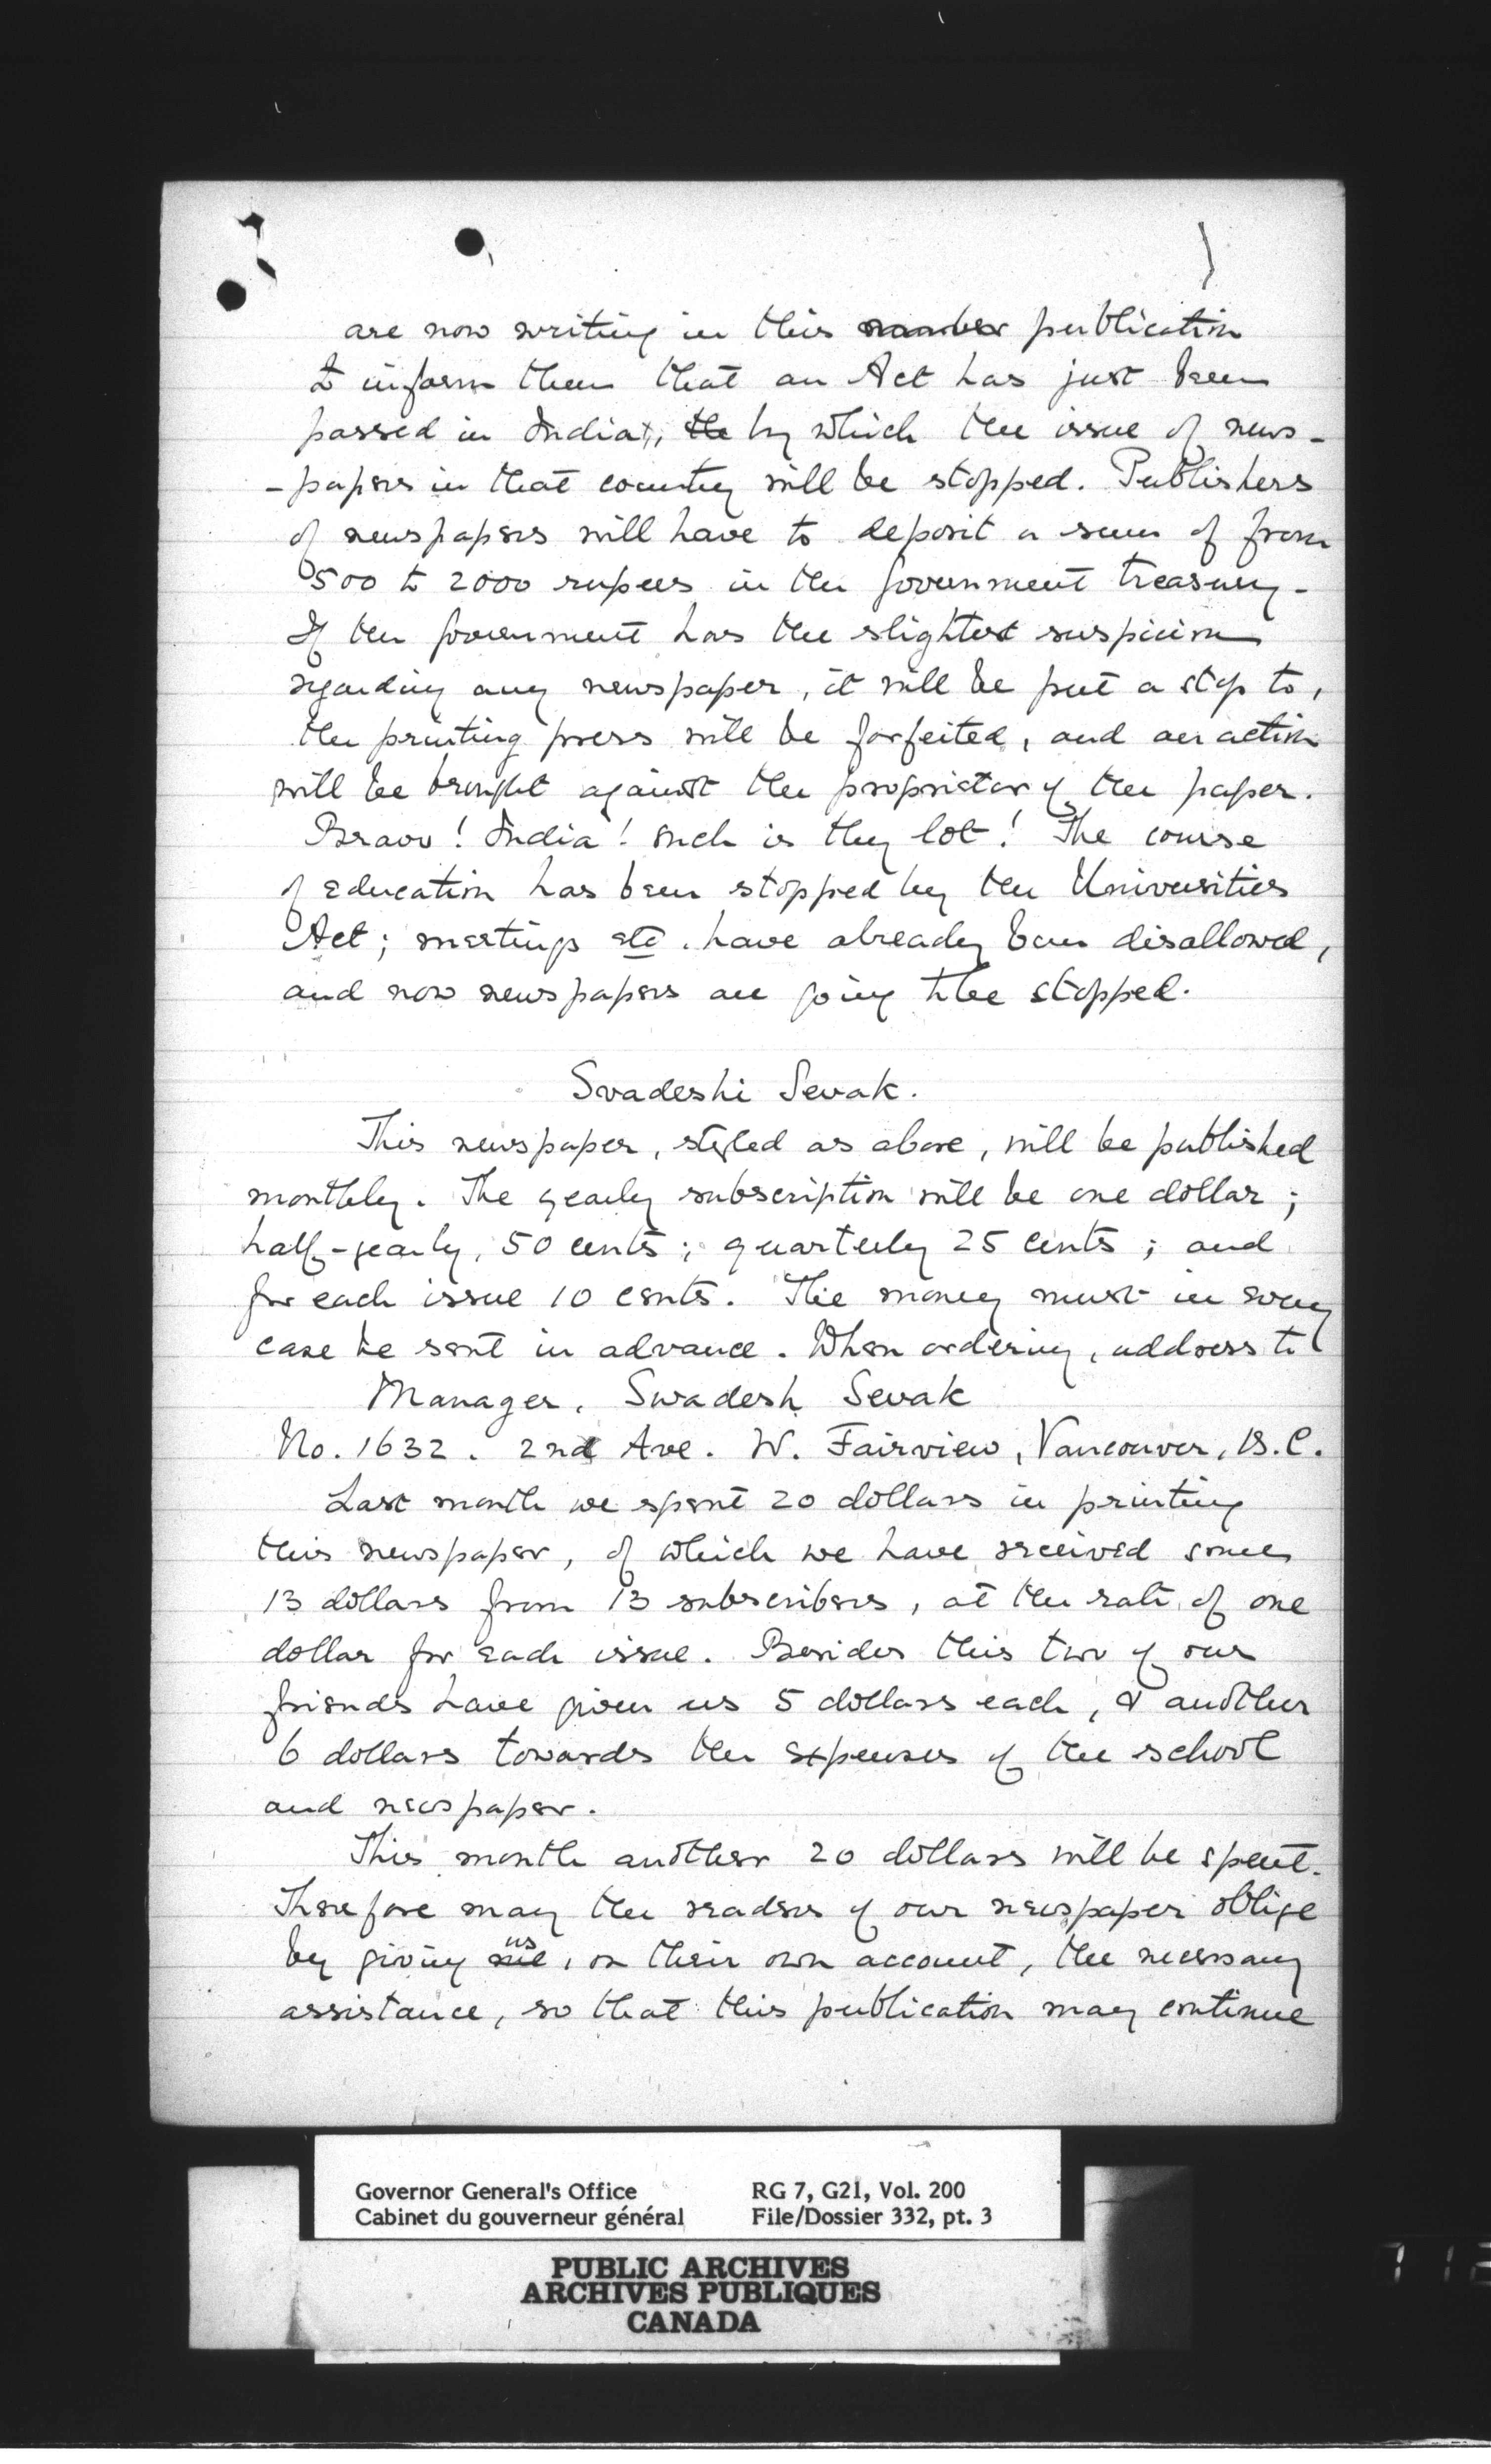 are now writing in this number publication
to inform them that an Act has just been
passed in India, the by which the issue of news-
-papers in that country will be stopped. Publishers
of newspapers will have to deposit a sum of from
500 to 2000 rupees in the Government treasury.
If the Government has the slightest suspicion
regarding any newspaper, it will be put a stop to,
the printing press will be forfeited, and an action
will be brought against the proprietor of the paper.
Bravo! India! such is thy lot! The course
of education has been stopped by the Universities
Act; meetings etc. have already been disallowed,
and now newspapers are going to be stopped.
Svadeshi Sevak.
This newspaper, styled as above, will be published
monthly. The yearly subscription will be one dollar;
half-yearly, 50 cents; quarterly 25 cents; and
for each issue 10 cents. The money must in every
case be sent in advance. When ordering, address to
Manager, Swadesh Sevak
No. 1632. 2nd Ave. W. Fairview, Vancouver, B.C.
Last month we spent 20 dollars in printing
this newspaper, of which we have received some
13 dollars from 13 subscribers, at the rate of one
dollar for each issue. Besides this two of our
friends have given us 5 dollars each, & another
6 dollars towards the expenses of the school
and newspaper.
This month another 20 dollars will be spent.
Therefore may the readers of our newspaper oblige
by giving us, on their own account, the necessary
assistance, so that this publication may continue
Governor General's Office RG 7, G21, Vol. 200
Cabinet du gouverneur général File/Dossier 332, pt. 3
PUBLIC ARCHIVES
ARCHIVES PUBLIQUES
CANADA